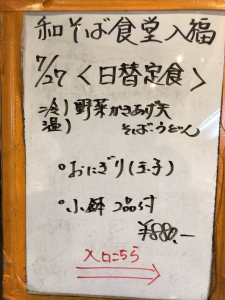 和そば食堂入福
7/27<日替定食>
冷)野菜かきあげ天
温)そば・うどん
・おにぎり(玉子)
・小鉢 2品付
¥880.-
入口こちら